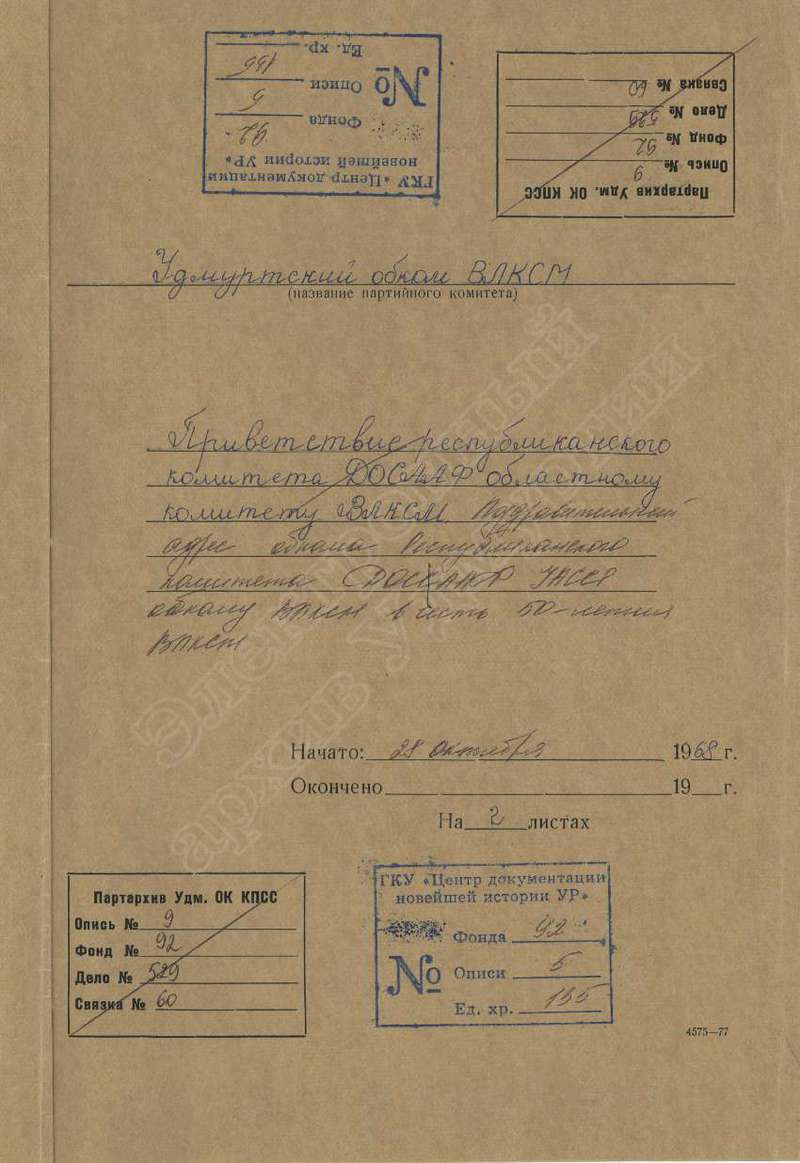 ГКУ «Центр документации
новейшей истории УР»
Фонда 92
№ Описи 5
Ед. хр.
Партархив Удм. ОК КПСС
Опись № 9
Фонд № 92
Дело № 529
Связка № 60
Удмуртский обком ВЛКСМ
(название партийного комитета)
Приветствие республиканского
комитета ДОСААФ областному
комитету ВЛКСМ Поздравительный
адрес обкома Республиканского
комитета ДОСААФ УАССР
обкому ВЛКСМ в честь 50-летия
ВЛКСМ
Начато: 28 октября 1968 г.
Окончено 19 г.
На 2 листах
Партархив Удм. ОК КПСС
Опись № 9
Фонд № 92
Дело № 529
Связка № 60
ГКУ «Центр документации
новейшей истории УР»
Фонда 92
№ Описи 5
Ед. хр. 155
4575—77
Электронный
архив